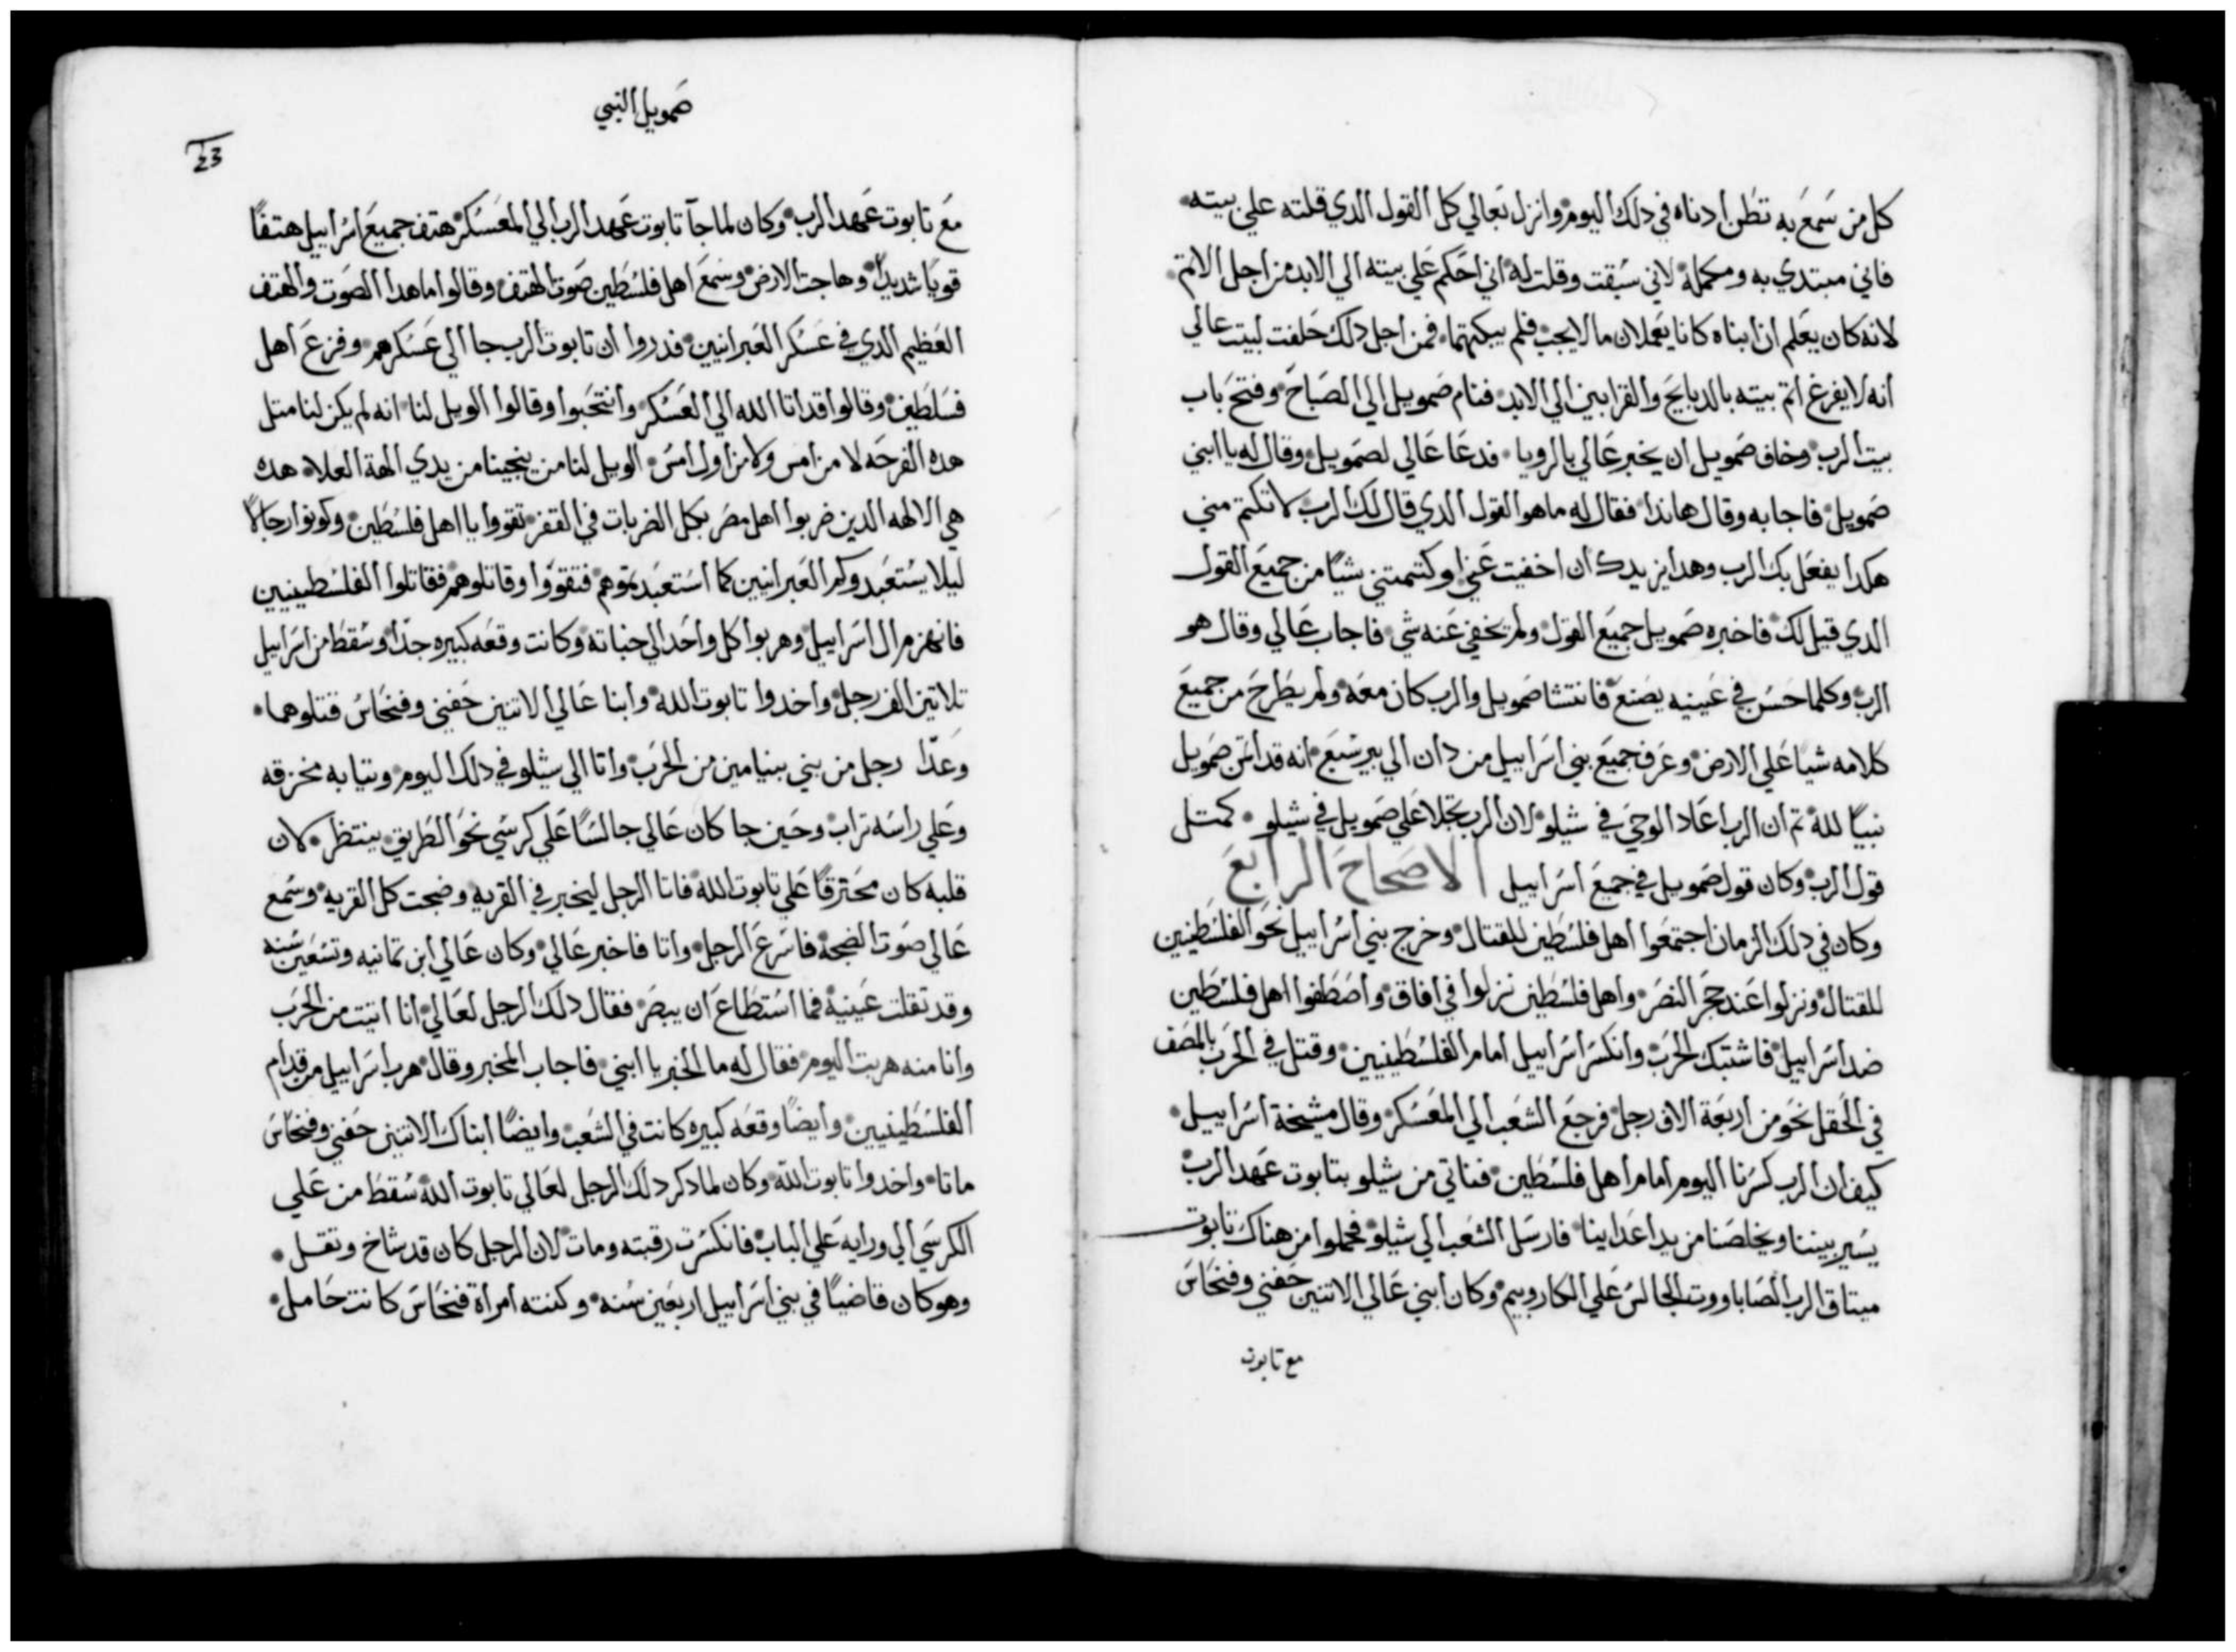 كل من سَمعَ به تطن ادناه في دلك اليوم وانزل بَعالي كل القول الدي قلته علي بيته
فاني مبتدي به ومكمله لاني سَبقت وقلت له اني احَكم عَلي بيته الي الابد من اجل الاتم
لانه كان يعَلم ان ابناه كانا يعَملان ما لا يجب فلم يبكتهما فمن اجل دلك حَلفت لبيت عالي
انه لا يفرغ اتم بيته بالدبايَح والقرابين الي الابد فنام صَمويل الي الصَباحَ وفتحَ باب
بيت الرب وخاف صَمويل ان يخبر عَالي بالرويا فدعَا عَالي لصَمويل وقال له يا ابني
صَمويل فاجابه وقال هاندا فقال له ما هو القول الدي قال لك الرب لا تكتم مني
هكدا يفعَل بك الرب وهدا يزيدك ان اخفيت عَني او كتمتني شيًا من جميعَ القول
الدي قيل لك فاخبره صَمويل جميعَ القول ولم يخفي عَنه شي فاجاب عَالي وقال هو
الرب وكلما حَسَن في عَينيه يصَنعَ فانتشا صَمويل والرب كان معَه ولم يطَرحَ من جميعَ
كلامه شيا عَلي الارض وعَرف جميعَ بني اسَراييل من دان الي بيرسَبعَ انه قد أتمن صَمويل
نبيًا لله تم ان الرب اعَاد الوحَي في شيلو لان الرب تجلا عَلي صَمويل في شيلو كمتل
قول الرب وكان قول صَمويل في جميعَ اسَراييل الاصَحاحَ الرابعَ
وكان في دلك الزمان اجتمعَوا اهل فلسَطَين للقتال وخرج بني اسَراييل نحَو الفلسَطَينيين
للقتال ونزلوا عَند حجَر النصَر واهل فلسَطَين نزلوا في افاق واصَطَفوا اهل فلسَطَين
ضد اسَراييل فاشتبك الحَرب وانكسَر اسَراييل امام الفلسَطَينيين وقتل في الحَرب بالمصَف
في الحَقل نحَو من اربعَة الاف رجل فرجعَ الشعَب الي المعَسَكر وقال مشيخة اسَراييل
كيف ان الرب كسَرنا اليوم امام اهل فلسَطَين فناتي من شيلو بتابوت عَهد الرب
يسَير بيننا ويخلصَنا من يد اعَداينا فارسَل الشعَب الي شيلو فحملوا من هناك تابوت
ميتاق الرب الصَاباووت الجالسَ عَلي الكاروبيم وكان ابني عَالي الاتنين حَفني وفنحَاسَ
مع تابوت
صَمويل النبي
23
معَ تابوت عَهد الرب وكان لما جآ تابوت عَهد الرب الي المعَسَكر هتف جميعَ اسَراييل هتفًا
قويًا شديدًا وهاجت الارض وسَمعَ اهل فلسَطَين صَوت الهتف وقالوا ما هدا الصَوت والهتف
العَظيم الدي في عَسَكر العَبرانيين فدروا ان تابوت الرب جا الي عَسَكرهم وفزعَ اهل
فسَلطَين وقالوا قد اتا الله الي العَسَكر وانتحَبوا وقالوا الويل لنا انه لم يكن لنا متل
هده الفرحَه لا من امس ولا من اول امسَ الويل لنا من ينجينا من يدي الهة العلا هده
هي الالهه الدين ضربوا اهل مصَر بكل الضربات في القفر تقووا يا اهل فلسَطَين وكونوا رجالًا
ليلا يسَتعَبدوكم العَبرانيين كما اسَتعَبدتموهم فتقووا وقاتلوهم فقاتلوا الفلسَطَينيين
فانهزم ال اسَراييل وهربوا كل واحَد الي خباته وكانت وقعَه كبيره جدًا وسَقطَ من اسَراييل
تلاتين الف رجل واخدوا تابوت الله وابنا عَالي الاتنين حَفني وفنحَاسَ قتلوهما
وعَدّا رجل من بني بنيامين من الحَرب واتا الي شيلو في دلك اليوم وتيابه مخزقه
وعَلي راسَه تراب وحَين جا كان عَالي جالسًا عَلي كرسَي نحَو الطَريق ينتظر لان
قلبه كان محَترقًا عَلي تابوت الله فاتا الرجل ليخبر في القريه وضجت كل القريه وسَمع
عَالي صَوت الضجه فاسَرعَ الرجل واتا فاخبر عَالي وكان عَالي ابن تمانيه وتسَعَين سَنه
وقد تقلت عَينيه فما اسَتطَاعَ ان يبصَر فقال دلك الرجل لعَالي انا اتيت من الحَرب
وانا منه هربت اليوم فقال له ما الخبر يا ابني فاجاب المخبر وقال هرب اسَراييل من قدام
الفلسَطَينيين وايضًا وقعَه كبيره كانت في الشعَب وايضًا ابناك الاتنين حَفني وفنحَاسَ
ماتا واخدوا تابوت الله وكان لما دكر دلك الرجل لعَالي تابوت الله سَقطَ من عَلي
الكرسَي الي ورايه عَلي الباب فانكسَرت رقبته ومات لان الرجل كان قد شاخ وتقل
وهو كان قاضيًا في بني اسَراييل اربعَين سَنه وكنته امراة فنحَاسَ كانت حَامل